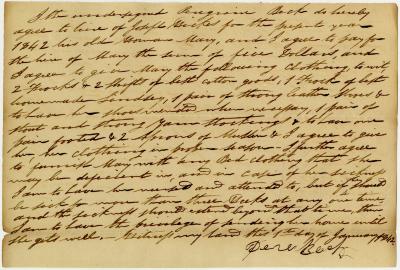 I the undersigned Peregrine Beck do hereby
agree to hire of Joseph Hickes for the present year
1842 his old Woman Mary, and I agree to pay for
the hire of Mary the sum of five Dollars and
I agree to give Mary the following Clothing to wit,
2 Frocks & 2 Shifts of both cotton goods, 1 Frock of best
homemade Lindsey, 1 pair of strong Leather Shoes &
to have her shoes mended when necessary, 1 pair of
stout and strong Yarn Stockings & to have one
pair footed & 2 Aprons of Muslin & I agree to give
her her clothing in proper season. I further agree
to furnish Mary with any Bed clothing that she
may be deficient in, and in case of her sickness
I am to have her nursed and attended to, but if should
be sick for more than three Weeks at any one time,
and the sickness should extend beyond that time, then
I am to have the privilege of sending her home until
she gets well. Witness my hand this 1st day of January 1842.
Pere Beck